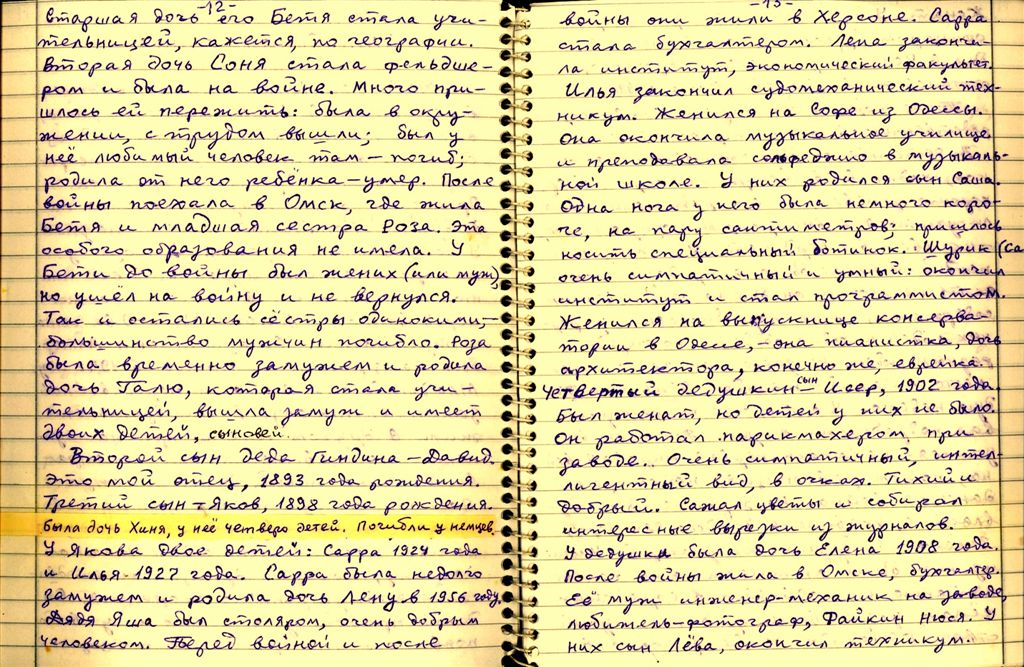 -12-
Старшая дочь его Бетя стала учи-
тельницей, кажется, по географии.
Вторая дочь Соня стала фельдше-
ром и была на войне. Много при-
шлось ей пережить: была в окру-
жении, с трудом вышли; был у
неё любимый человек там – погиб;
родила от него ребёнка – умер. После
войны поехала в Омск, где жила
Бетя и младшая сестра Роза. Эта
особого образования не имела. У
Бети до войны был жених (или муж),
но ушёл на войну и не вернулся.
Так и остались сёстры одинокими, –
большинство мужчин погибло. Роза
была временно замужем и родила
дочь Галю, которая стала учи-
тельницей, вышла замуж и имеет
двоих детей, сыновей.
Второй сын деда Гиндина – Давид.
Это мой отец, 1893 года рождения.
Третий сын – Яков, 1898 года рождения.
Была дочь Хиня, у неё четверо детей. Погибли у немцев.
У Якова двое детей: Сарра 1924 года
и Илья 1927 года. Сарра была недолго
замужем и родила дочь Лену в 1956 году,
Дядя Яша был столяром, очень добрым
человеком. Перед войной и после
-13-
войны они жили в Херсоне. Сарра
стала бухгалтером. Лена закончи-
ла институт, экономический факультет.
Илья закончил судомеханический тех-
никум. Женился на Софе из Одессы.
Она окончила музыкальное училище
и преподавала сольфеджио в музыкаль-
ной школе. У них родился сын Саша.
Одна нога у него была немного коро-
че, на пару сантиметров; пришлось
носить специальный ботинок. Шурик (Са
очень симпатичный и умный: окончил
институт и стал программистом.
Женился на выпускнице консерва-
тории в Одессе, – она пианистка, дочь
архитектора, конечно же, еврейка.
Четвертый дедушкин сын – Исер, 1902 года.
Был женат, но детей у них не было.
Он работал парикмахером при
заводе. Очень симпатичный, интел-
лигентный вид, в очках. Тихий и
добрый. Сажал цветы и собирал
интересные вырезки из журналов.
У дедушки была дочь Елена 1908 года.
После войны жила в Омске, бухгалтер.
Её муж инженер-механик на заводе,
любитель-фотограф, Файкин Нюся. У
них сын Лёва, окончил техникум.